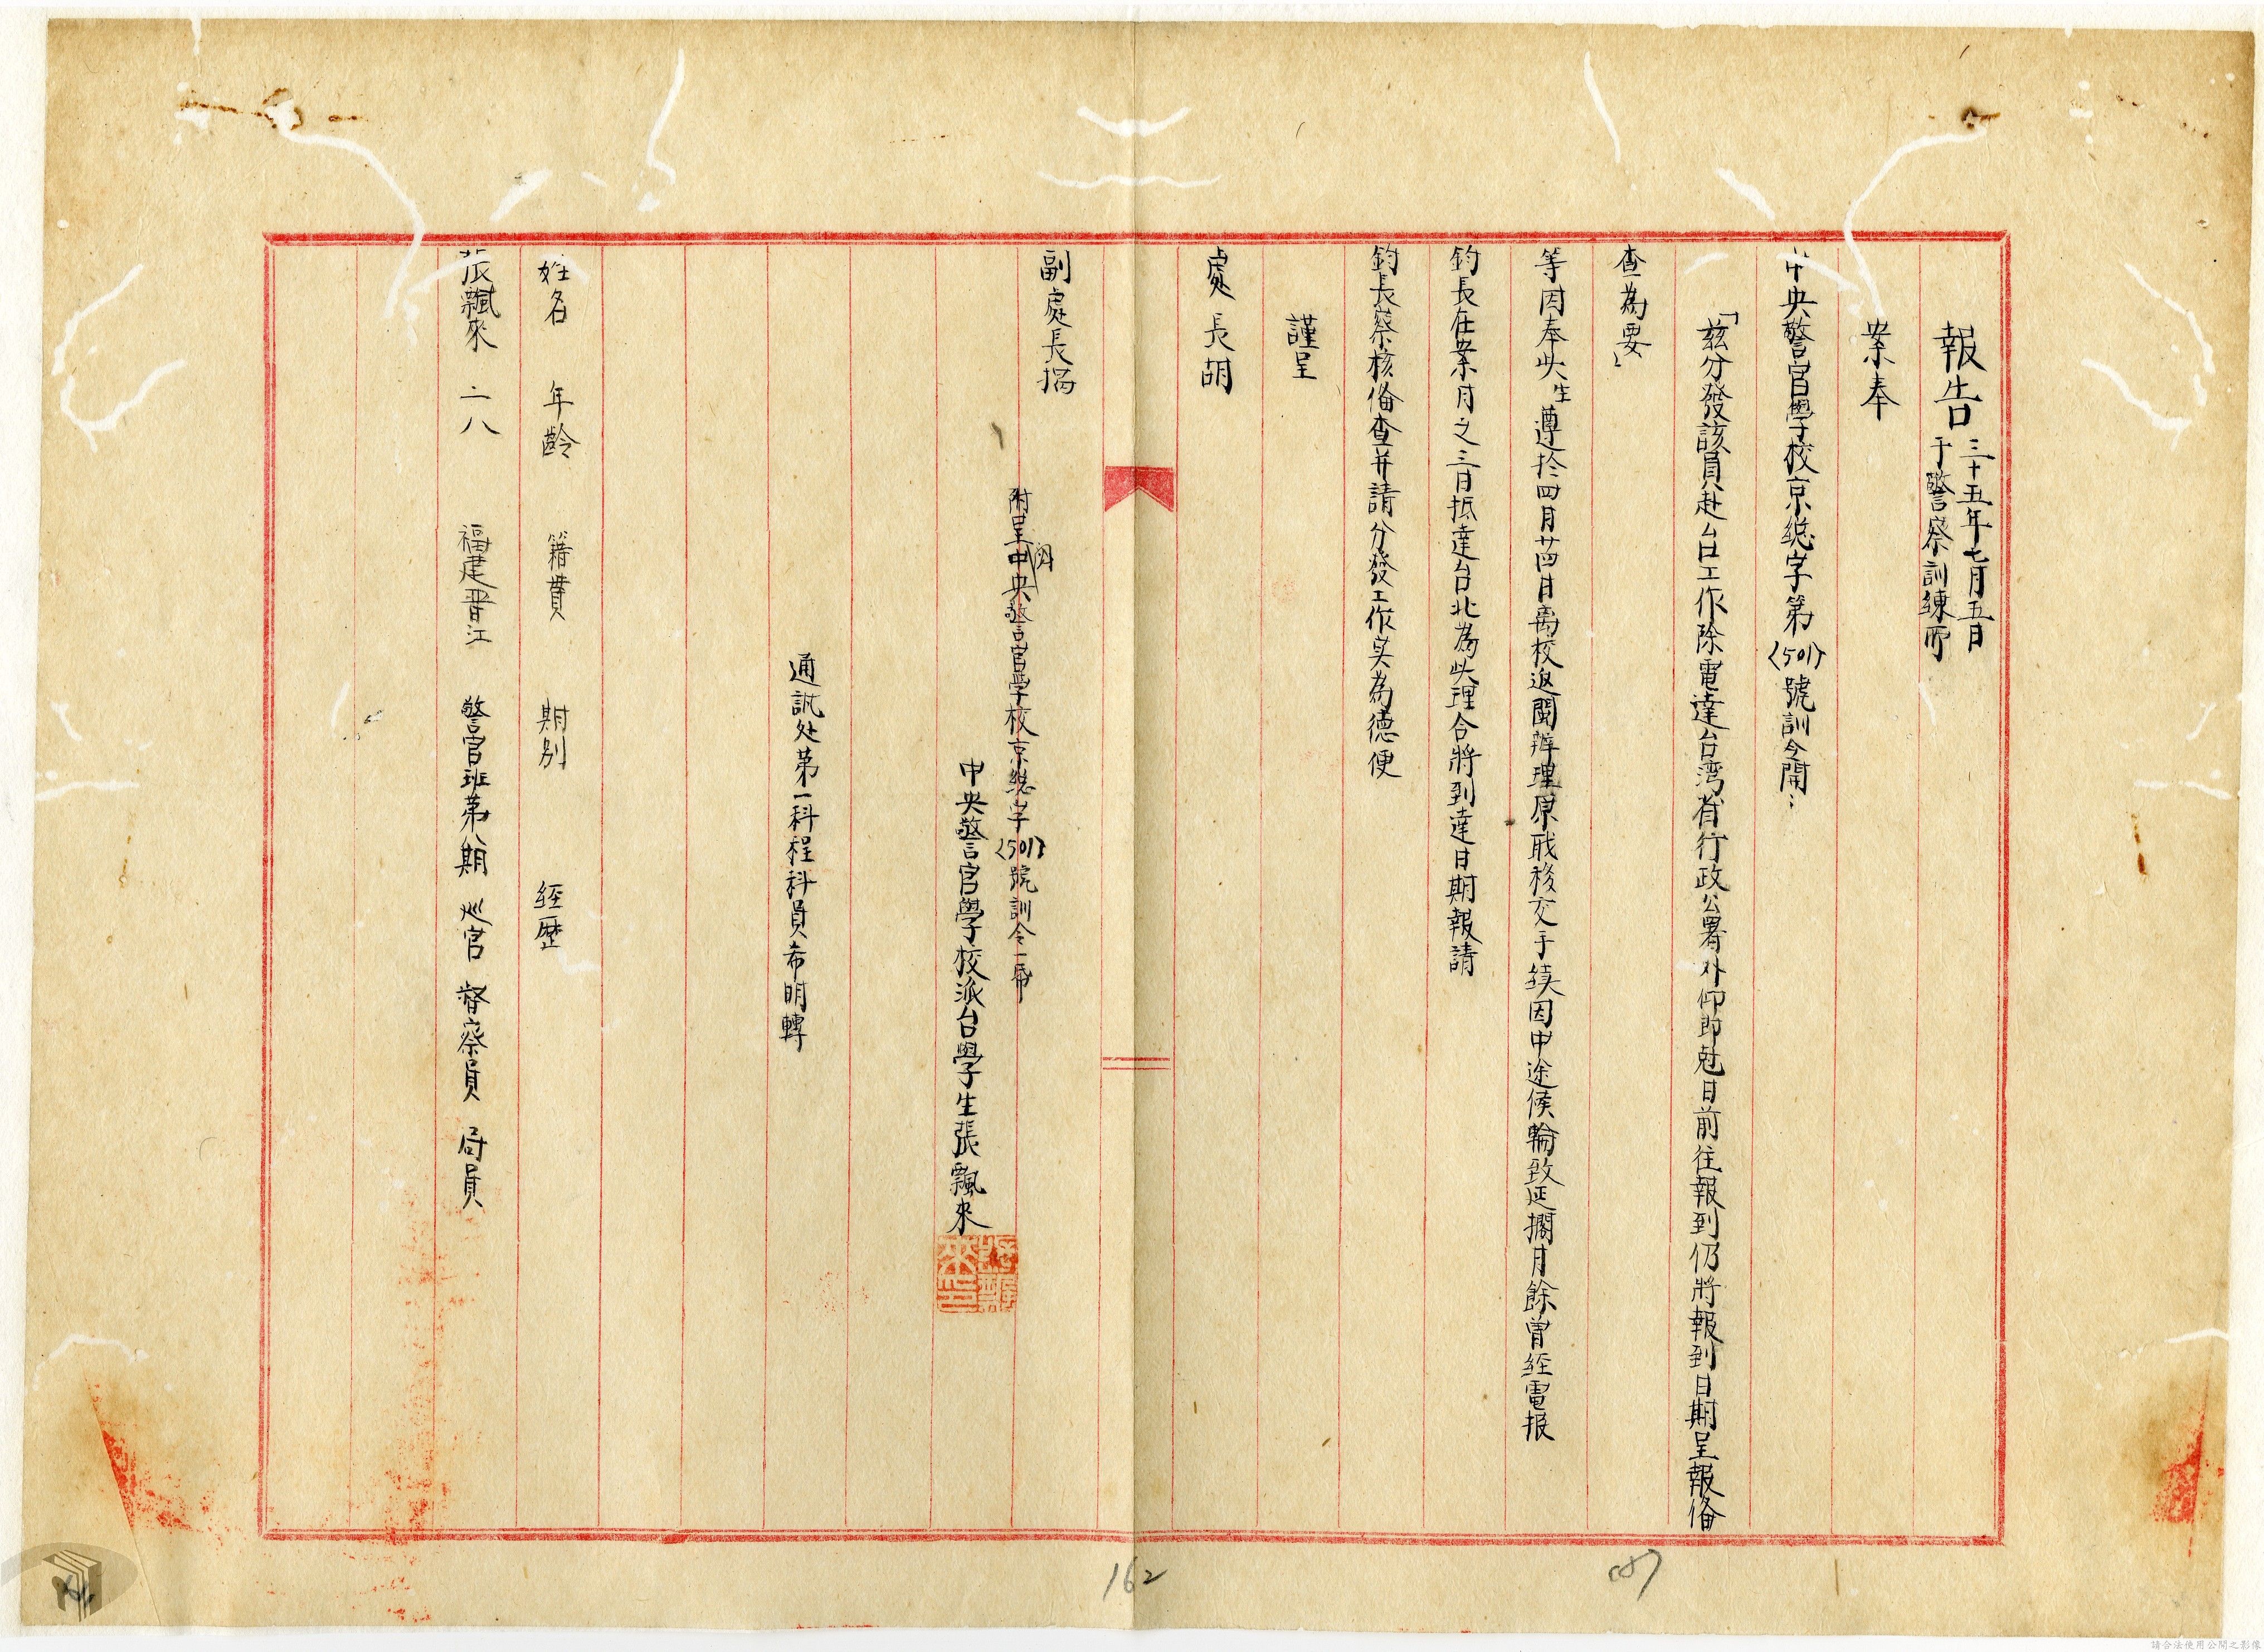 報告 三十五年七月五日
于警察訓練所
案奉
中央警官學校京總字第(501)號訓令開：
「茲分發該員赴台工作除電達台湾省行政公署外仰即尅日前往報到仍將報到日期呈報備
查為要」
等因奉此生遵於四月廿四日离校返閩辦理原职移交手續因中途候輪致延擱月餘曾經電报
鈞長在案月之三日抵達台北為此理合將到達日期報請
鈞長察核俻查并請分發工作实為德便
謹呈
處長胡
副處長
附呈中央警官學校京總字(501)號訓令一帋
中央警官學校派台學生張飄來
通訊处第一科程科員布明轉
姓名 年齡 籍貫 期别 經歷
張飄來 二八 福建晋江 警官班第八期 巡官 督察員 局員
162